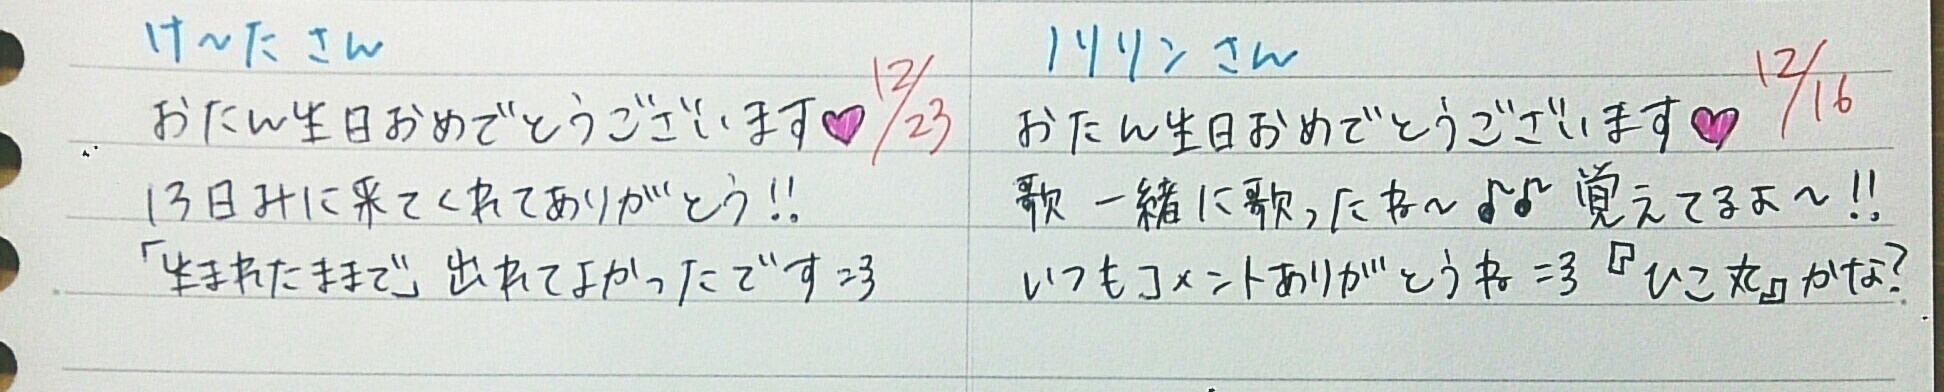 け〜たさん
12/23
おたん生日おめでとうございます♥
13日みに来てくれてありがとう!!
「生まれたままで」出れてよかったです=3
ノリリンさん
12/16
おたん生日おめでとうございます♥
歌一緒に歌ったね〜♪♪覚えてるよ〜!!
いつもコメントありがとうね=3『ひこ丸』かな?